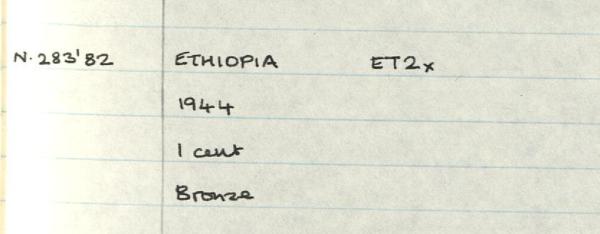 N.283'82 ETHIOPIA ET2x
1944
1 cent
Bronze